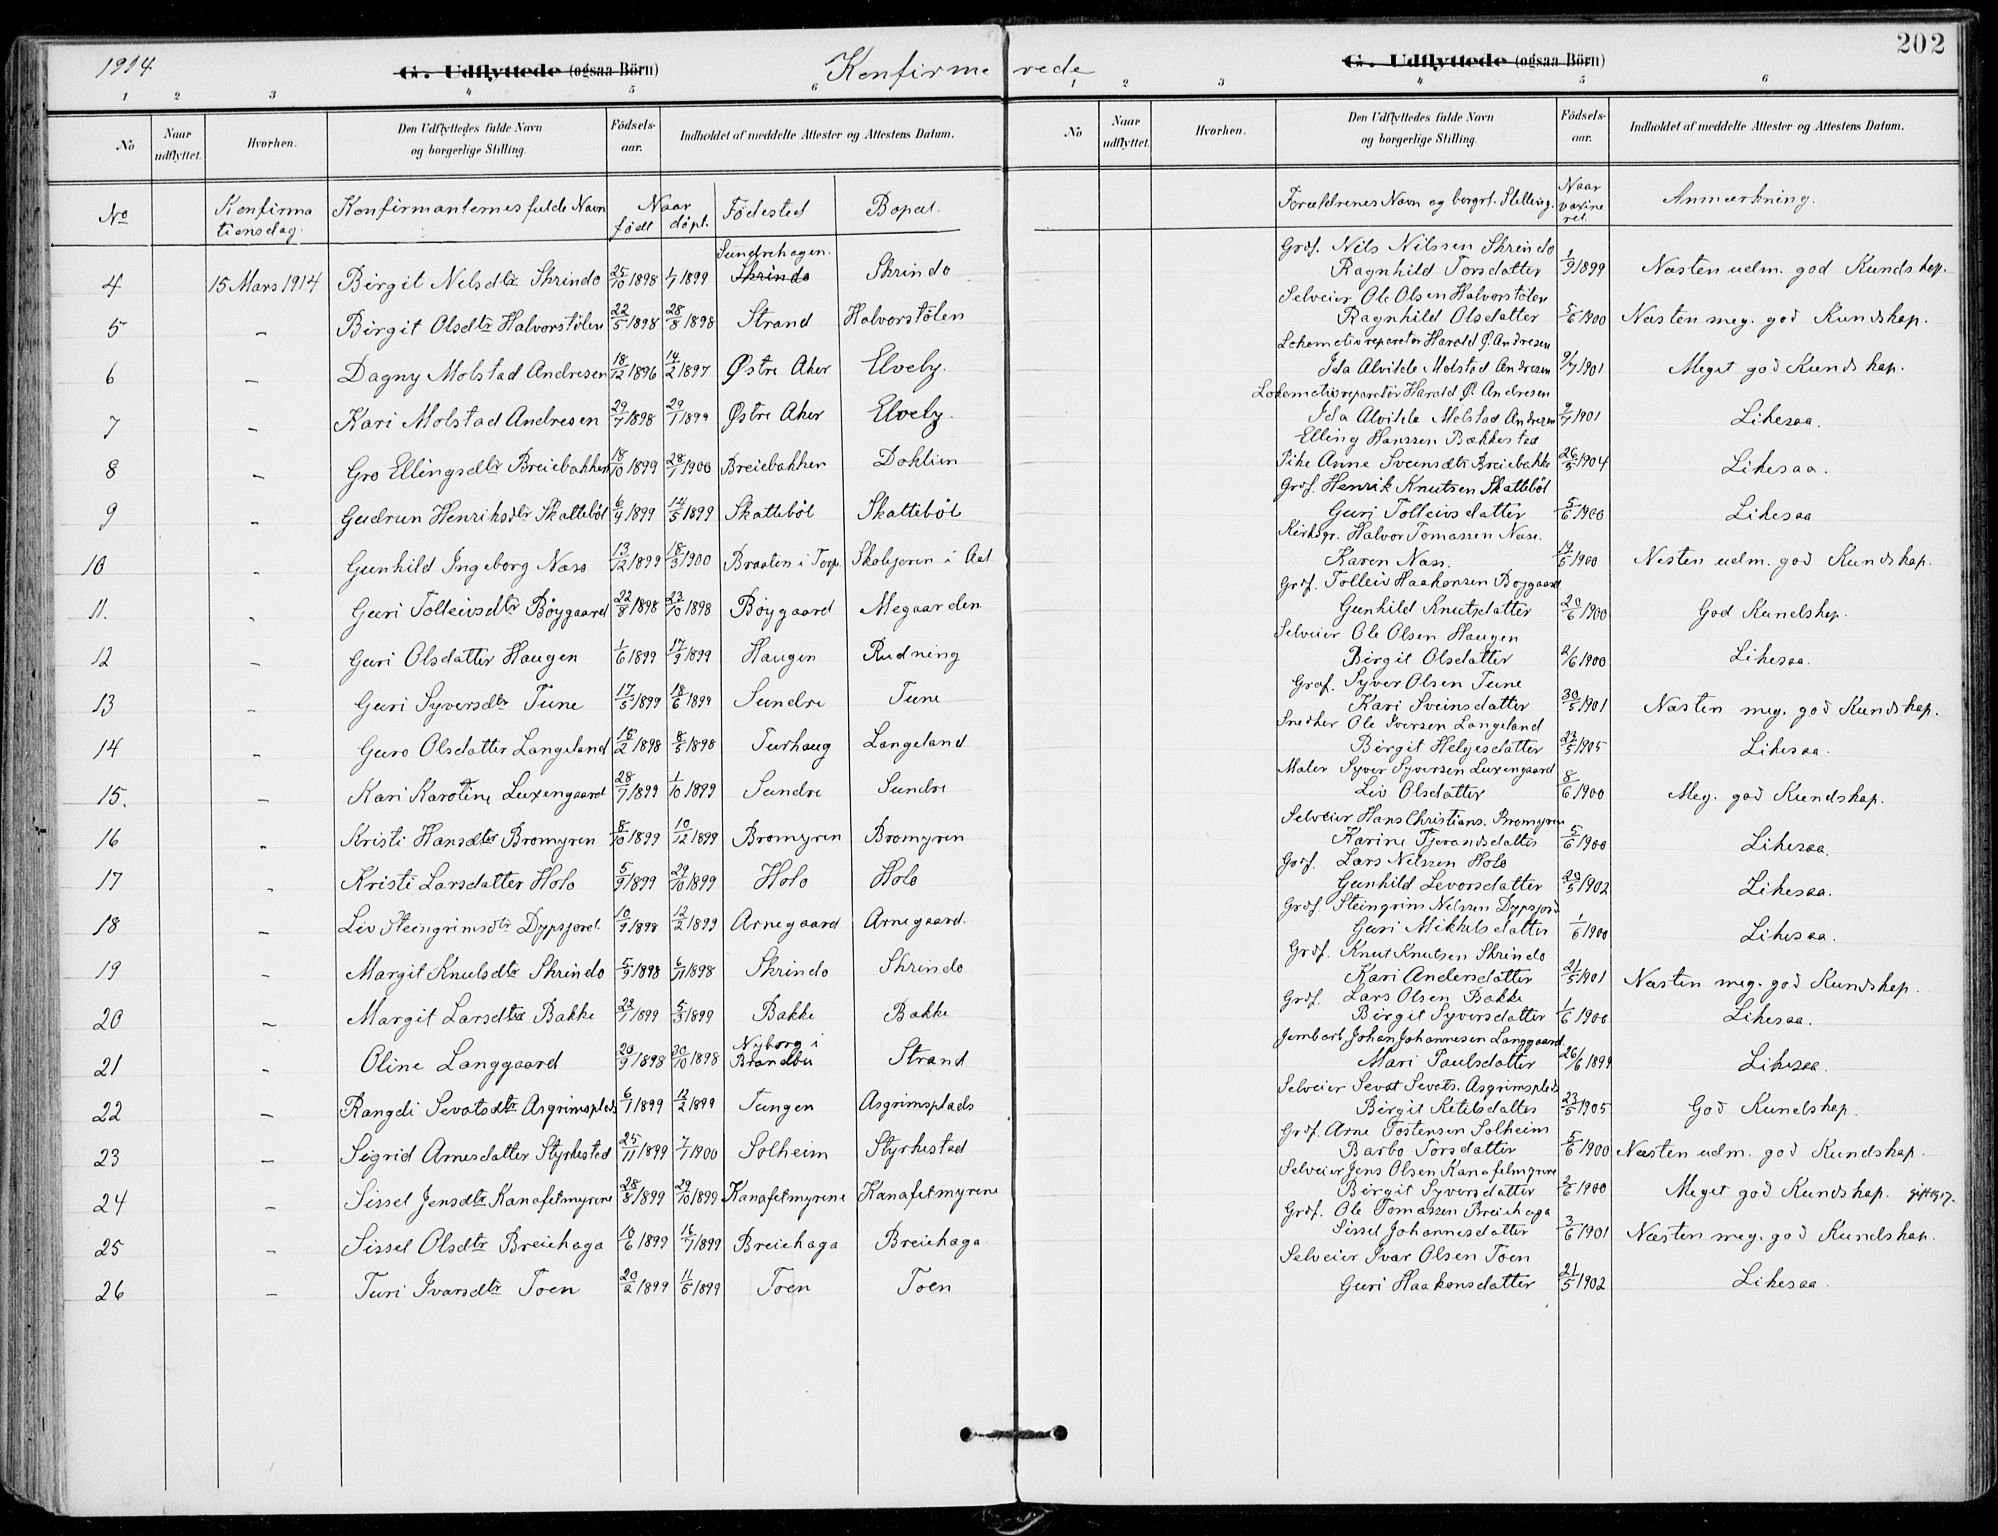 1914 G. Udflyttede (ogsaa Börn) Konfirmerede G. Udflyttede (ogsaa Börn) 202
1 2 3 4 5 6 1 2 3 4 5 6
No Naar udflyttet. Hvorhen. Den Udflyttedes fulde Navn og borgerlige Stilling. Födsels-aar. Indholdet af meddelte Attester og Attestens Datum. No Naar udflyttet. Hvorhen. Den Udflyttedes fulde Navn og borgerlige Stilling. Födsels-aar. Indholdet af meddelte Attester og Attestens Datum.
No Konfirmationsdag. Konfirmanternes fulde Navn Naar født døpt. Fødested Bopæl. Forældrenes Navn og borgrl. Stilling. Naar vaxineret. Anmærkning.
Sundrehagen. Grdf. Nils Nilssen Skrindo
4 15 Mars 1914 Birgit Nelsdtr Skrindo 25/10 1898 1/1 1899 Skrindo Skrindo Ragnhild Torsdatter 1/9 1899 Næsten udm. god Kundskap.
Selveier Ole Olsen Halvorstølen
5 - Birgit Olsdtr Halvorstølen 22/5 1898 28/8 1898 Strand Halvorstølen Ragnhild Olsdatter 5/6 1900 Næsten meg. god Kundskap.
Lokomotivreparatør Harald Ø. Andresen
6 - Dagny Molstad Andresen 18/12 1896 14/2 1897 Østre Aker Elveby. Ida Alvilde Molstad Andresen 9/7 1901 Meget god Kundskap.
Lokomotivreparatør Harald Ø. Andresen
7 - Kari Molstad Andresen 29/7 1898 29/1 1899 Østre Aker Elveby. Ida Alvilde Molstad Andresen 9/7 1901 Likesaa.
Elling Hanssen Bækkestad
8 - Gro Ellingsdtr Breiebakken 18/10 1899 28/1 1900 Breiebakken Doklien Pike Anne Sveinsdtr Breiebakke 26/5 1904 Likesaa.
Grdf. Henrik Knutsen Skattebøl
9 - Gudrun Henriksdtr Skattebøl 6/4 1899 14/5 1899 Skattebøl Skattebøl Guri Tolleivsdatter 5/6 1900 Likesaa
Kirksgr. Halvor Tomassen Næss.
10 - Gunhild Ingeborg Næss 13/12 1899 18/3 1900 Braaten i Torpe Skolejoren i Aal Karen Næss. 19/5 1900 Nesten udm. god Kundskap.
Grdf. Tolleiv Haakonsen Bøygaard
11. - Guri Tolleivsdtr Bøygaard 22/8 1898 23/10 1898 Bøygaard Megaarden Gunhild Knutsdatter 20/6 1900 God Kundskap.
Selveier Ole Olsen Haugen
12 - Guri Olsdatter Haugen 1/6 1899 17/9 1899 Haugen Rudning Birgit Olsdatter 2/6 1900 Likesaa.
Grdf. Syver Olsen Tune
13 - Guri Syversdtr Tune 17/5 1899 18/6 1899 Sundre Tune Kari Sveinsdatter 30/5 1901 Næsten meg. god Kundskap.
Snedker Ole Iversen Langeland
14 - Guro Olsdatter Langeland 15/2 1898 8/5 1898 Turhaug Langeland Birgit Helgesdatter 23/5 1905 Likesaa.
Maler Syver Syversen Luxengaard
15. - Kari Karoline Luxengaard 28/7 1899 1/10 1899 Sundre Sundre Liv Olsdatter 8/6 1900 Meg. god Kundskap.
Selveier Hans Christians. Bromyren
16 - Kristi Hansdtr Bromyren 8/10 1899 10/12 1899 Bromyren Bromyren Karine Tjerandsdatter 5/6 1900 Likesaa.
Grdf. Lars Nelssen Holo
17 - Kristi Larsdatter Holo 5/9 1899 29/10 1899 Holo Holo Gunhild Levorsdatter 20/5 1902 Likesaa.
Grdf. Steingrim Nelssen Dypsjord
18 - Liv Steingrimsdtr Dypsjord. 10/9 1898 12/2 1899 Arnegaard Arnegaard. Guri Mikkelsdatter 1/6 1900 Likesaa.
Grdf. Knut Knutsen Skrindo
19 - Margit Knutsdtr Skrindo 5/9 1898 6/11 1898 Skrindo Skrindo Kari Andersdatter 21/5 1901 Næsten meg. god Kundskap.
Grdf. Lars Olsen Bakke
20 - Margit Larsdtr Bakke 23/1 1899 5/3 1899 Bakke Bakke Birgit Syversdatter 1/6 1900 Likesaa.
Nyborg i Jernbarb. Johan Johannesen Langgaard
21 - Oline Langgaard 20/9 1898 30/10 1898 Brandbu Strand Mari Paulsdatter 26/6 1899 Likesaa.
Selveier Sevat Sevats. Asgrimsplads
22 - Rangdi Sevatsdtr Asgrimsplads 6/1 1899 12/2 1899 Tungen Asgrimsplads Birgit Ketilsdatter 23/5 1905 God Kundskap.
Grdf. Arne Tostensen Solheim
23 - Sigrid Arnesdatter Styrkestad 25/11 1899 7/1 1900 Solheim Styrkestad Barbo Torsdatter 5/6 1900 Næsten udm. god Kundskap.
Selveier Jens Olsen Kanafetmyrene
24 - Sissel Jensdtr Kanafetmyrene 28/8 1899 29/10 1899 Kanafetmyrene Kanafetmyrene Birgit Syversdatter 2/6 1900 Meget god Kundskap. gift 1917.
Grdf. Ole Tomassen Breiehaga
25 - Sissel Olsdtr Breiehaga 10/6 1899 16/7 1899 Breiehaga Breiehaga. Sissel Johannesdatter 3/6 1901 Næsten meg. god Kundskap.
Selveier Ivar Olsen Toen
26 - Turi Ivarsdtr Toen 20/2 1899 11/5 1899 Toen Toen Guri Haakonsdatter 21/5 1902 Likesaa.